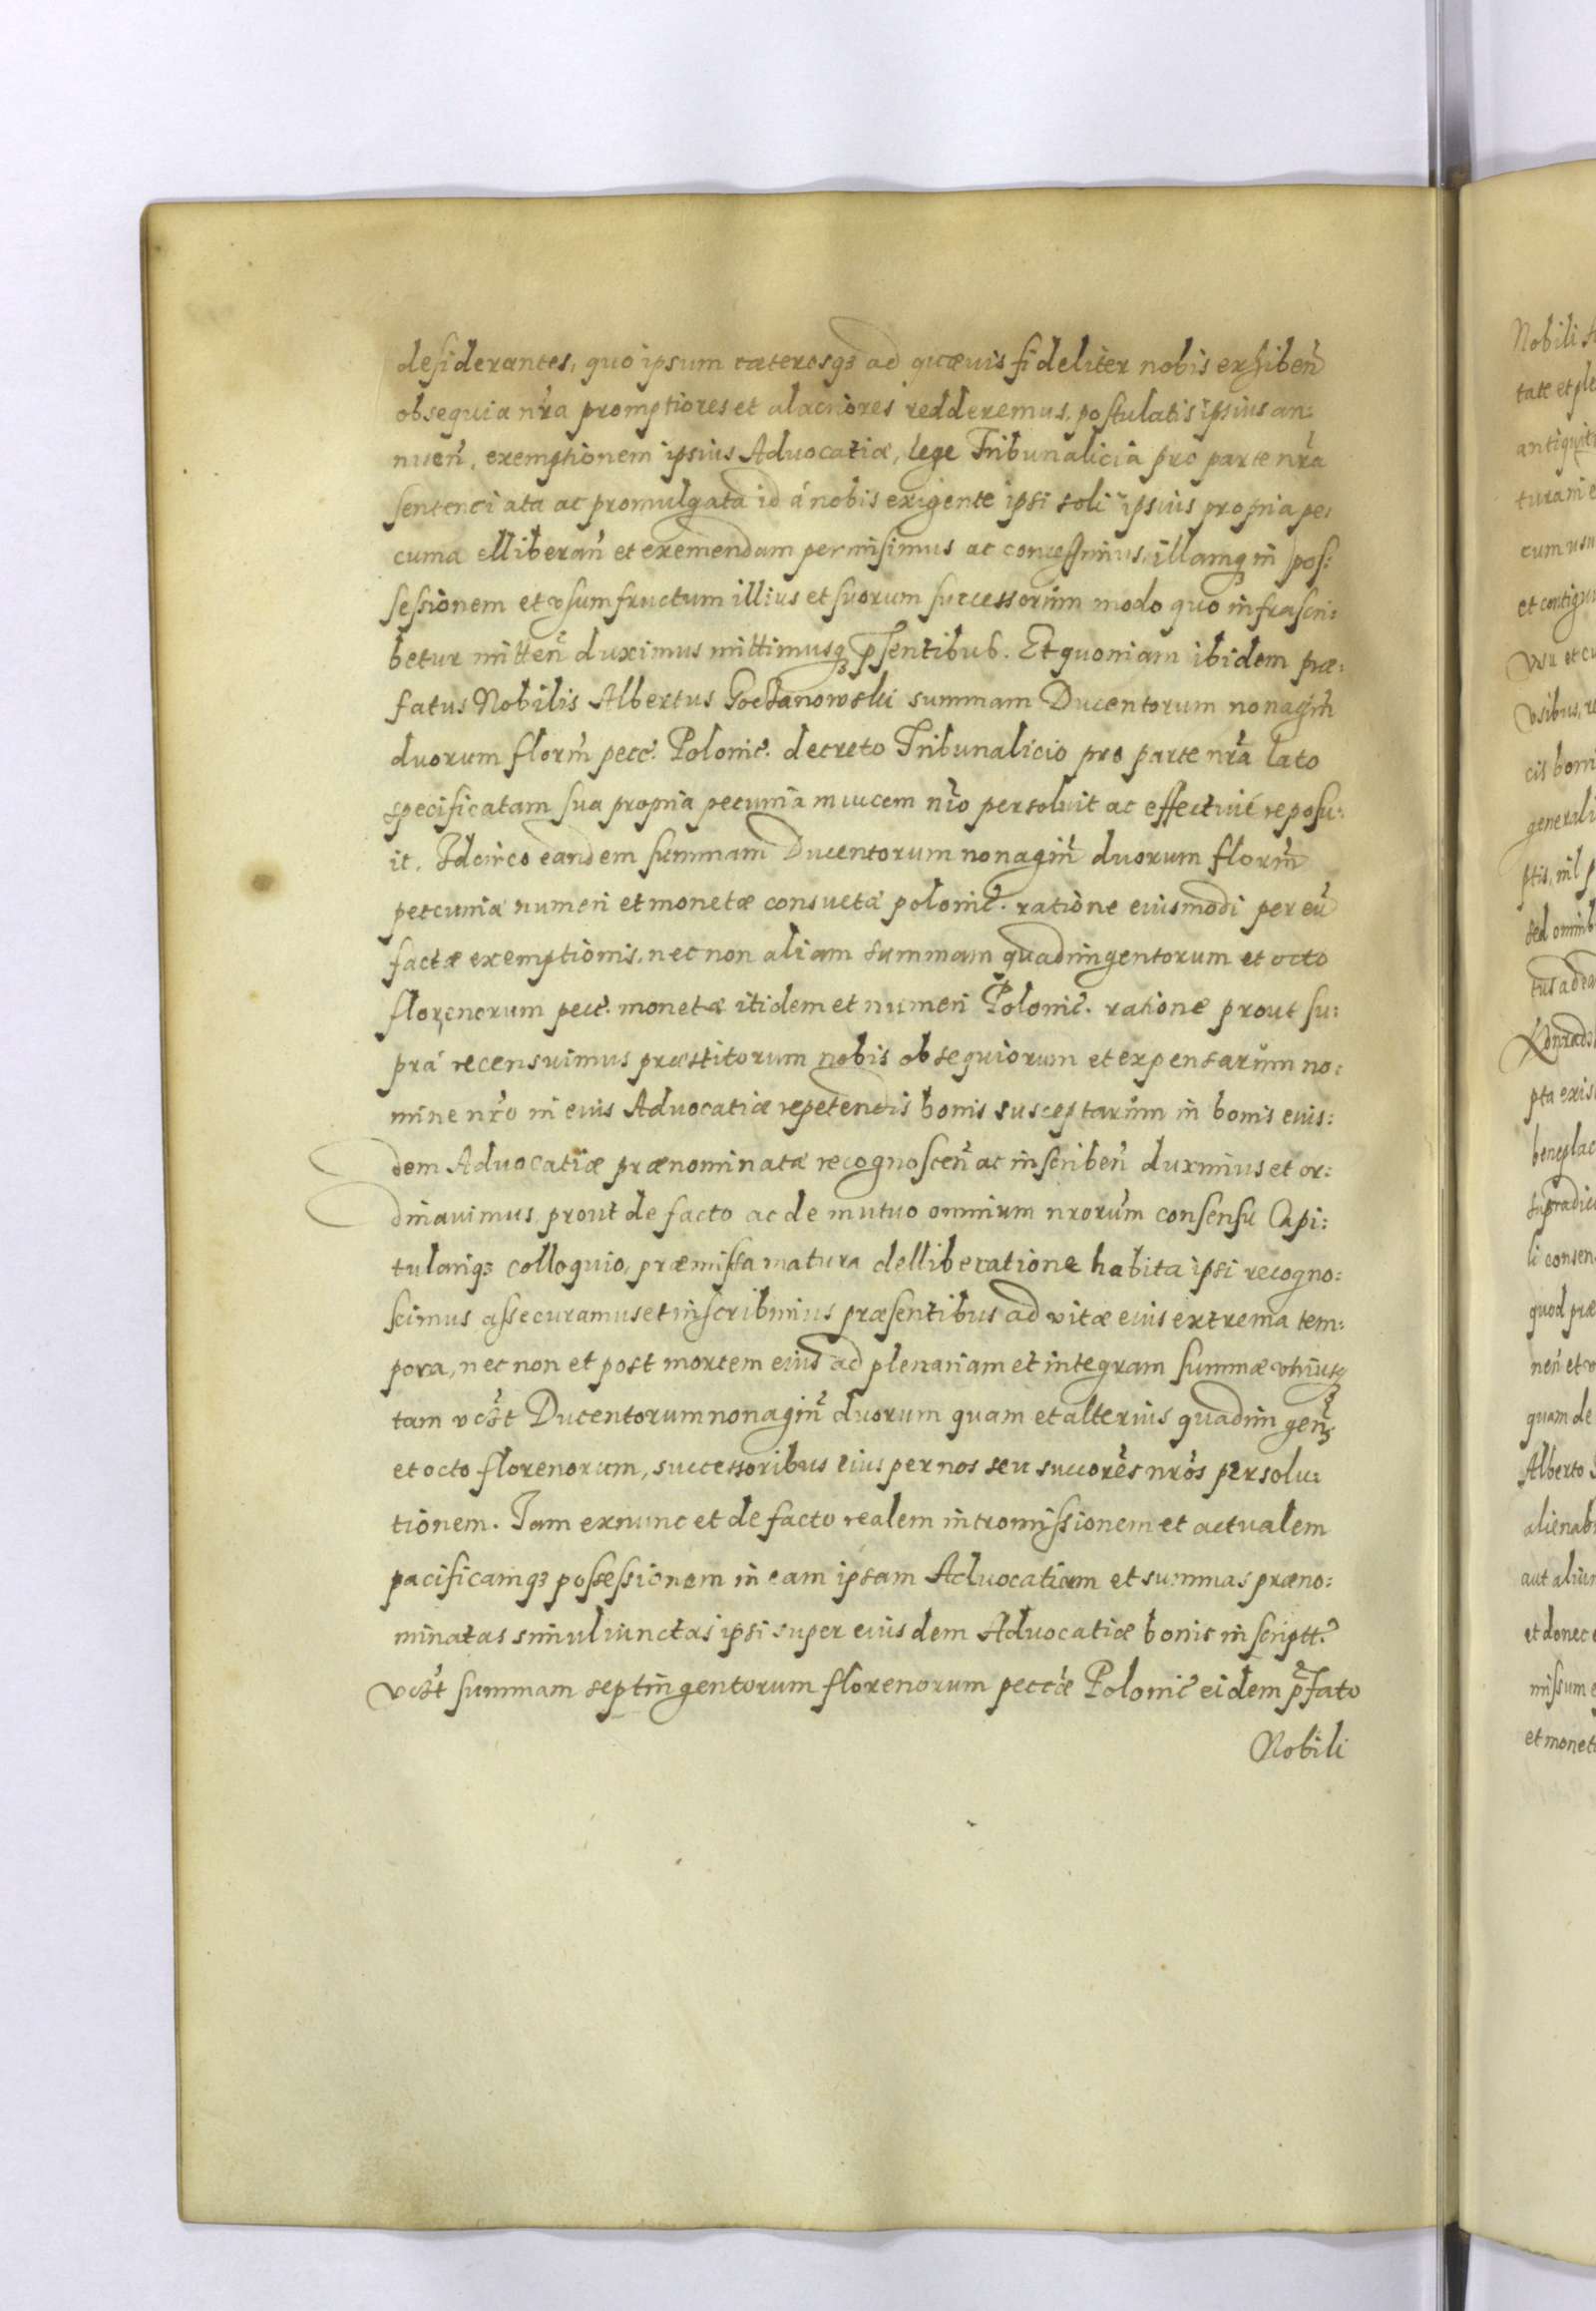 desiderantes, quo ipsum cæterosq3 ad quævis fideliter nobis exhibeñ
obsequia nr̃a promptiores et alacriores redderemus, postulatis ipsius an:
nueñ, exemptionem ipsius Advocatiæ, lege Tribunalicia pro parte nr̃a
sentenciata ac promulgata id á nobis exigente ipsi soli ipsius propria pe:
cunia elliberañ et exemendam permisimus ac concessimus, illamq3 in pos:
sessionem et vsumfructum illius et suorum successorum modo quo infrascri:
betur mitteñ duximus mittimusq3 p̃sentibus. Et quoniam ibidem præ:
fatus Nobilis Albertus summam Ducentorum nonagiñ
duorum florm̃ pecc. Polonic̃. decreto Tribunalicio pro parte nr̃a lato
specificatam sua propria pecunia in vicem nr̃o persolvit ac effectivé reposu:
it. Idcirco eandem summam Ducentorum nonagiñ duorum florm̃
pecuniæ numeri et monetæ consuetæ polonic̃. ratione eiusmodi per eũ
factæ exemptionis, nec non aliam summam quadringentorum et octo
florenorum pecc̃. monetæ itidem et numeri Polonic̃. ratione prout su:
prá recensuimus præstitorum nobis obsequiorum et expensarum no:
mine nr̃o in eius Advocatiæ repetendis bonis susceptarum in bonis eius:
dem Advocatiæ prænominatæ recognosceñ ac inscribeñ duximus et or:
dinavimus, prout de facto ac de mutuo omnium nr̃orum consensu Capi:
tulariq3 colloquio, præmissa matura delliberatione habita ipsi recogno:
scimus assecuramus et inscribimus præsentibus ad vitæ eius extrema tem:
pora, nec non et post mortem eius ad plenariam et integram summæ vtriusq3
tam vcz̃t Ducentorum nonagiñ duorum quam et alterius quadringeñ
et octo florenorum, successoribus eius per nos seu succorẽs nr̃os persolu:
tionem. Iam exnunc et de facto realem intromissionem et actualem
pacificamq3 possessionem in eam ipsam Advocatiam et summas præno:
minatas simul iunctas ipsi super eiusdem Advocatiæ bonis inscriptt.
vcz̃t summam septingentorum florenorum peccæ Polonic̃ eidem p̃fato
Nobili